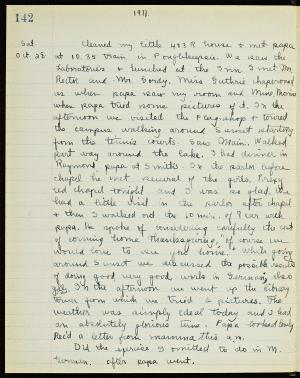 142
1911.
Sat.
Oct. 28
Cleaned my little 403 R house & met papa
at 10.35 train in Poughkeepsie. We saw the
Laboratories & lunched at the Inn. I met Mr.
and Mr. Miss Guthrie chaperoned
us when papa saw my room and Miss Morris
when papa tried some pictures of it. In the
afternoon we visited the & toured
the campus walking around Sunset
from the tennis courts. Saw Main. Walked
part way around the lake. I had dinner in
Raymond papa at Smiths. In the parlor before
chapel he met several of the girls. Prexy
led chapel tonight and I was so glad. We
had a little visit in the parlor after chapel
& then I walked out the 10 min. of 8 car with
papa. He spoke of considering carefully the cost
of coming home Thanksgiving, of course we
would love to see you home. While going
around Sunset we discussed the possible results
of doing good, very good, works in German, also
In the afternoon we went up the library
tower from which we tried 2 pictures. The
weather was simply ideal today and I had
an absolutely glorious time. Papa looked lovely.
Rec'd a letter from mamma this a.m.
Did the I omitted to do in M.
German. after papa went.